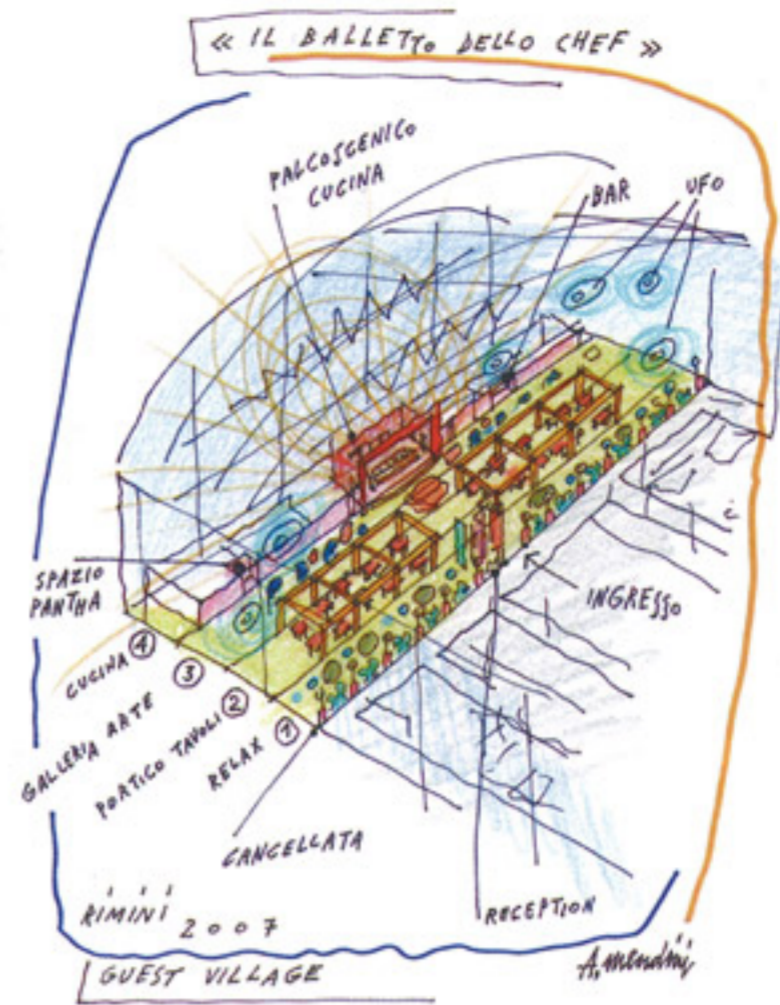 « IL BALLETTO DELLO CHEF »
PALCOSCENICO
CUCINA
BAR
UFO
SPAZIO
PANTHA
INGRESSO
CUCINA 4
GALLERIA ARTE 3
PORTICO TAVOLI 2
RELAX 1
CANCELLATA
RECEPTION
RIMINI
2007
A. Mendini
GUEST VILLAGE